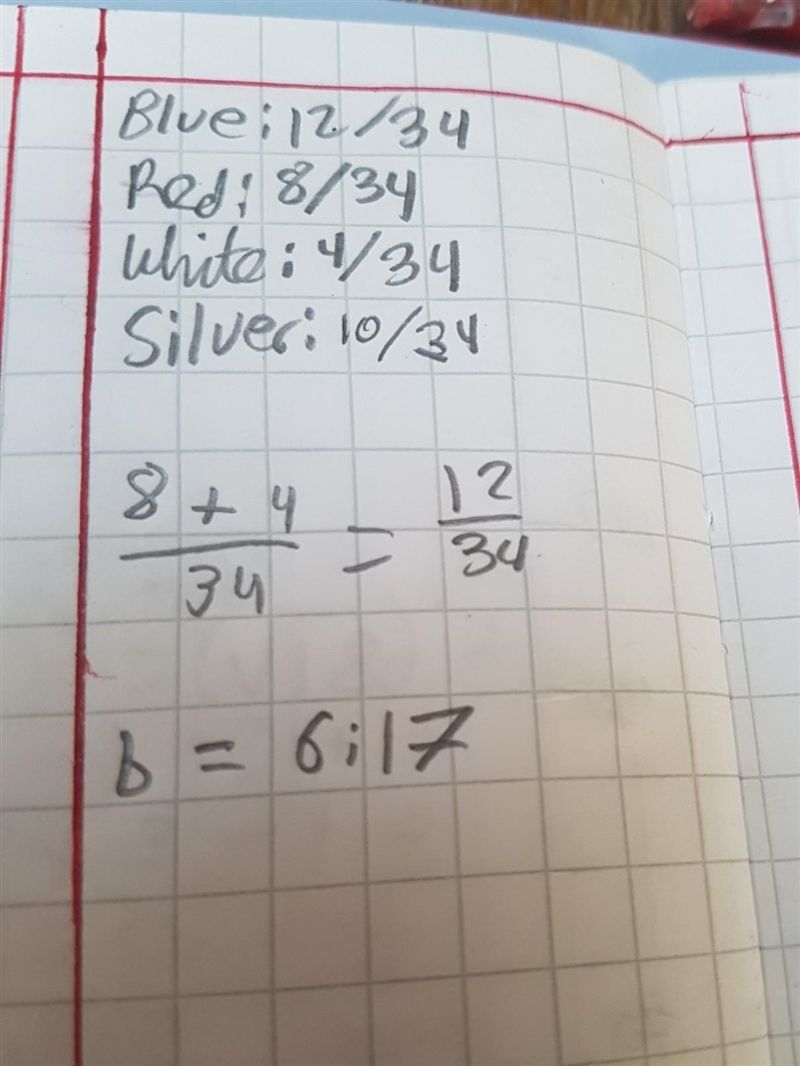 Blue: 12/34
Red: 8/34
White: 4/34
Silver: 10/34
8 + 4 / 34 = 12 / 34
b = 6:17